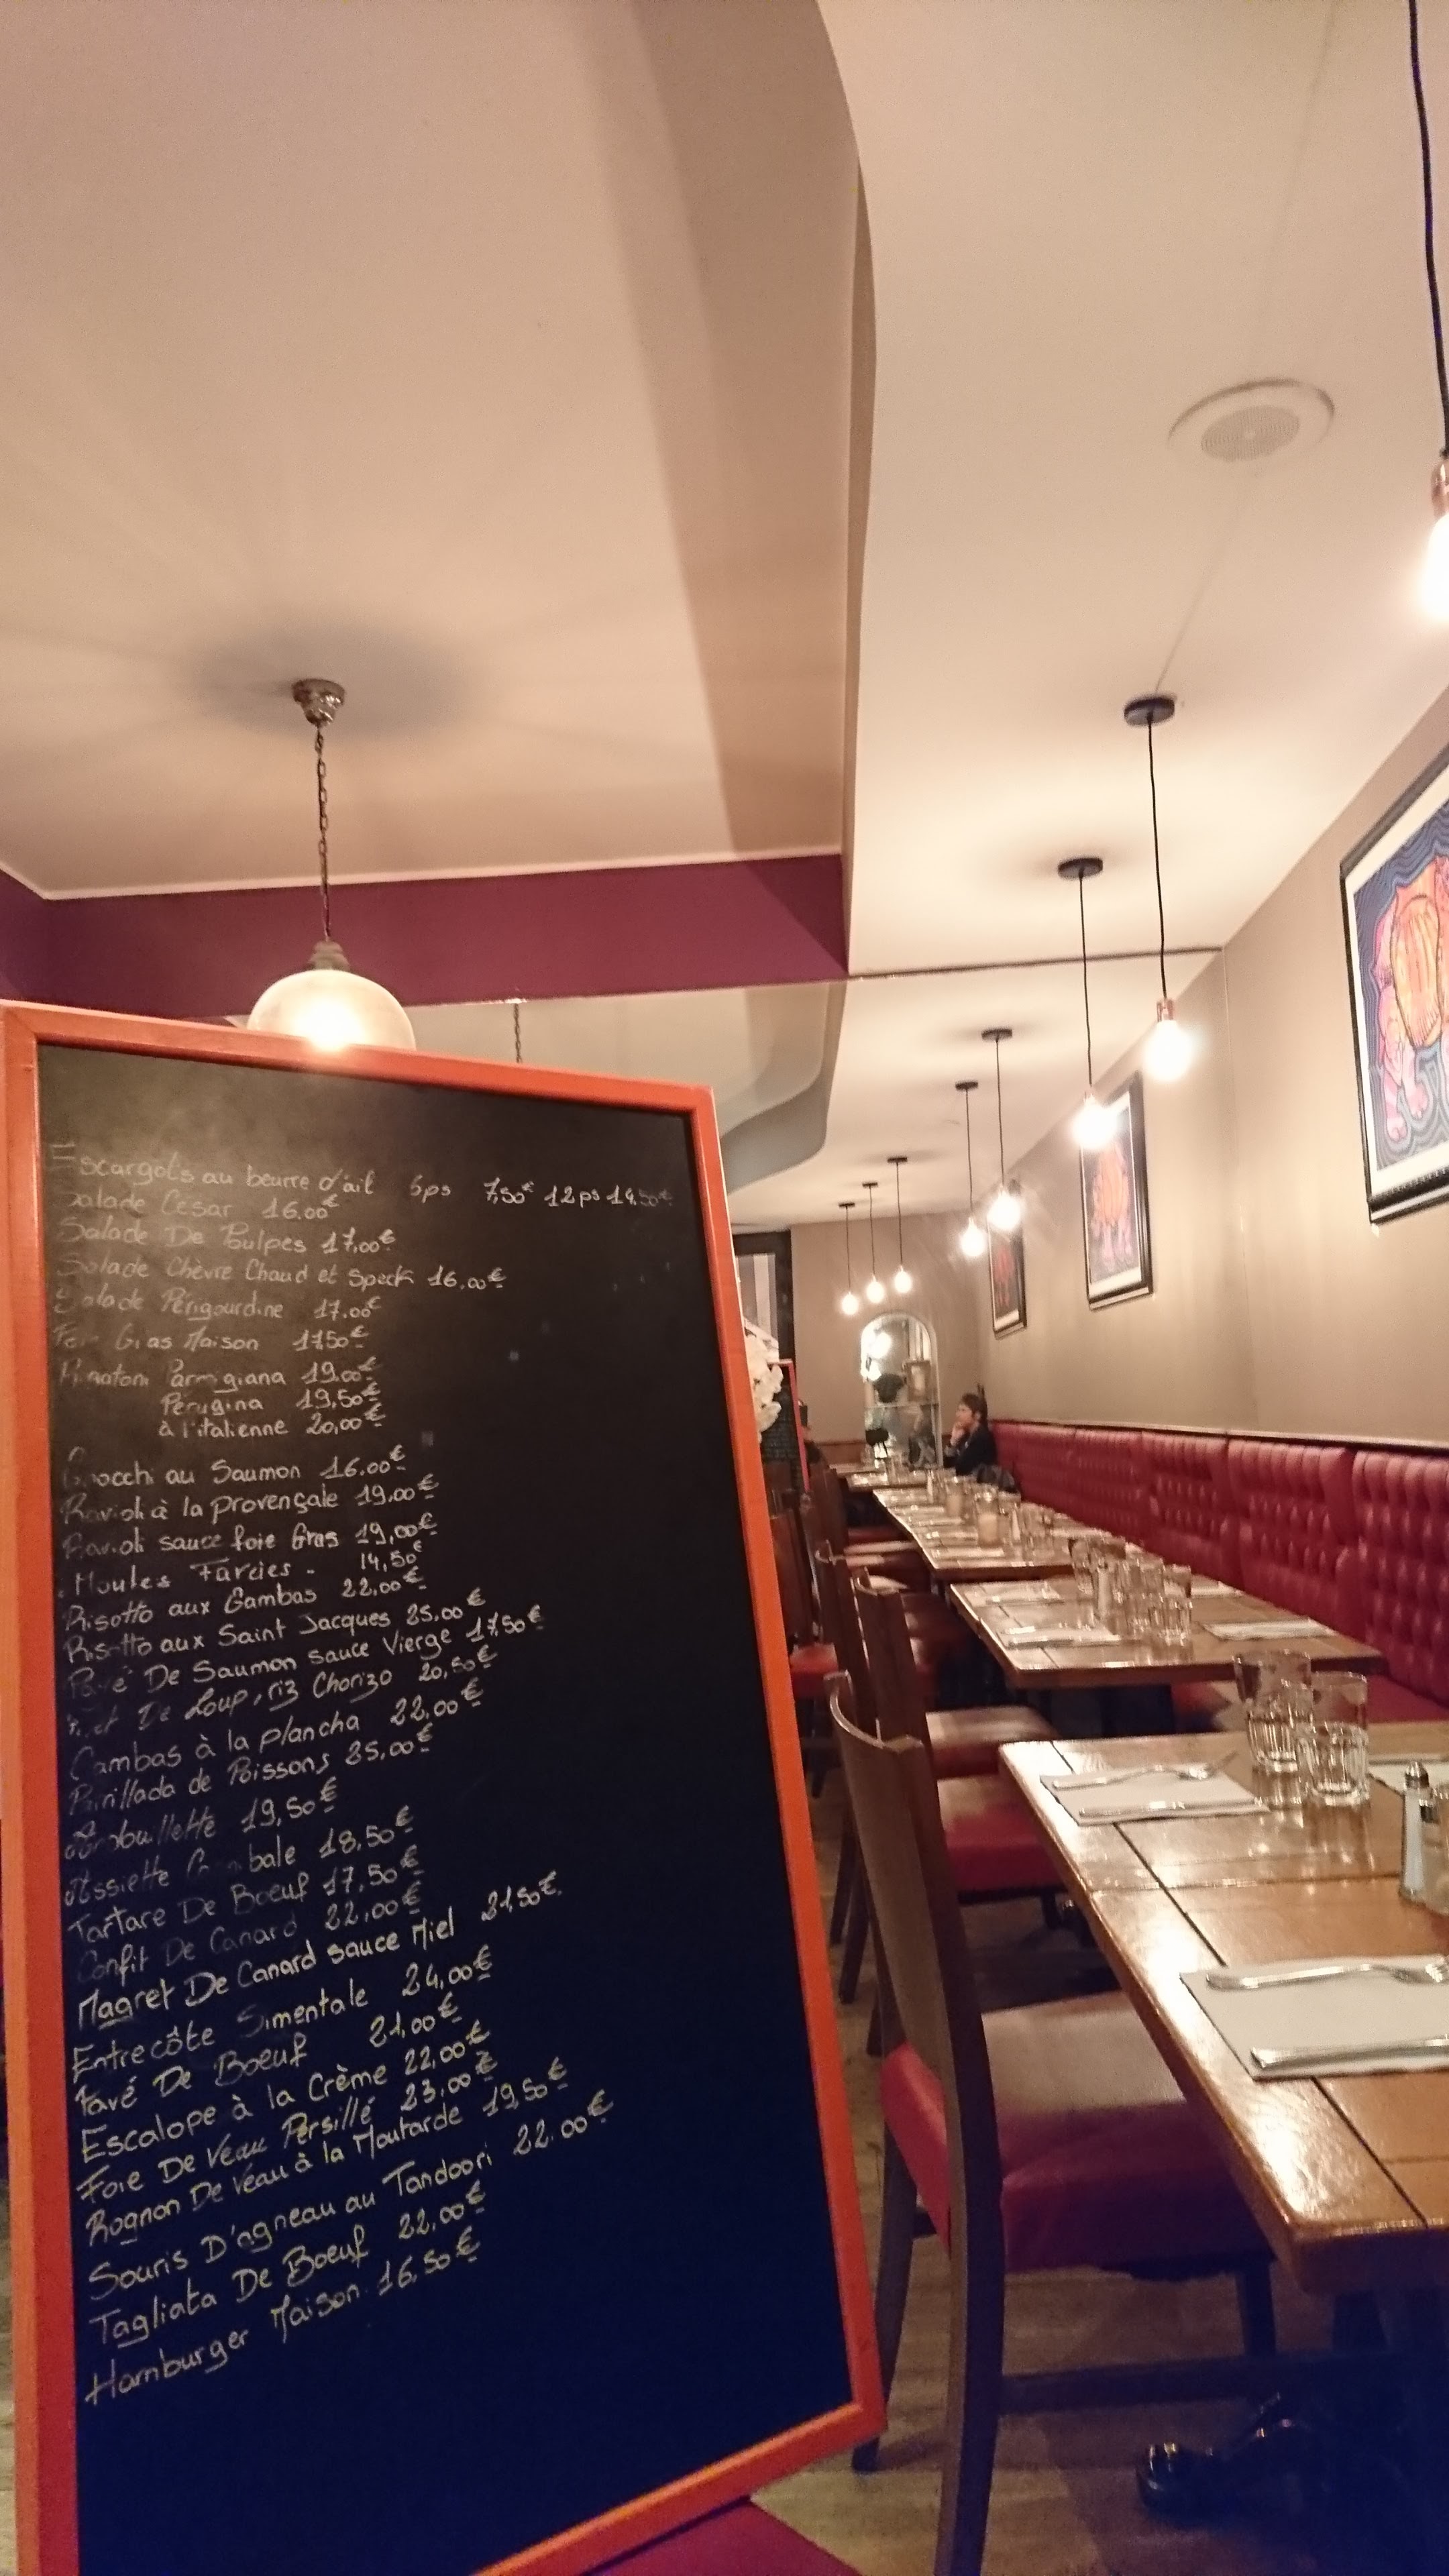 Escargots au beurre d'ail 6ps 7,50€ 12ps 14.50€
Salade César 16.00€
Salade De Poulpes 17,00€
Salade Chèvre Chaud et Speck 16,00€
Salade Périgourdine 17.00€
Foie Gras Maison 17,50€
Rigatoni Parmigiana 19.00€
Perugina 19,50€
à l'italienne 20,00€
Gnocchi au Saumon 16.00€
Ravioli à la provençale 19,00€
Ravioli sauce foie Gras 19,00€
Moules Farcies. 14,50€
Risotto aux Gambas 22,00€
Risotto aux Saint Jacques 25.00€
Pavé De Saumon sauce Vierge 17,50€
De Loup, riz Chorizo 20,50€
Gambas à la plancha 22,00€
de Poissons 25,00€
19,50€
Assiette 18,50€
Tartare De Boeuf 17,50€
Confit De Canard 22,00€
Magret De Canard sauce Miel 21,50€.
Entrecôte Simentale 24,00€
Pavé De Boeuf 21,00€
Escalope à la Crème 22,00€
Foie De Veau Persillé 23,00€
Rognon De Veau à la Moutarde 19,50€
Souris D'agneau au Tandoori 22.00€
Tagliata De Boeuf 22,00€
Hamburger Maison 16,50€